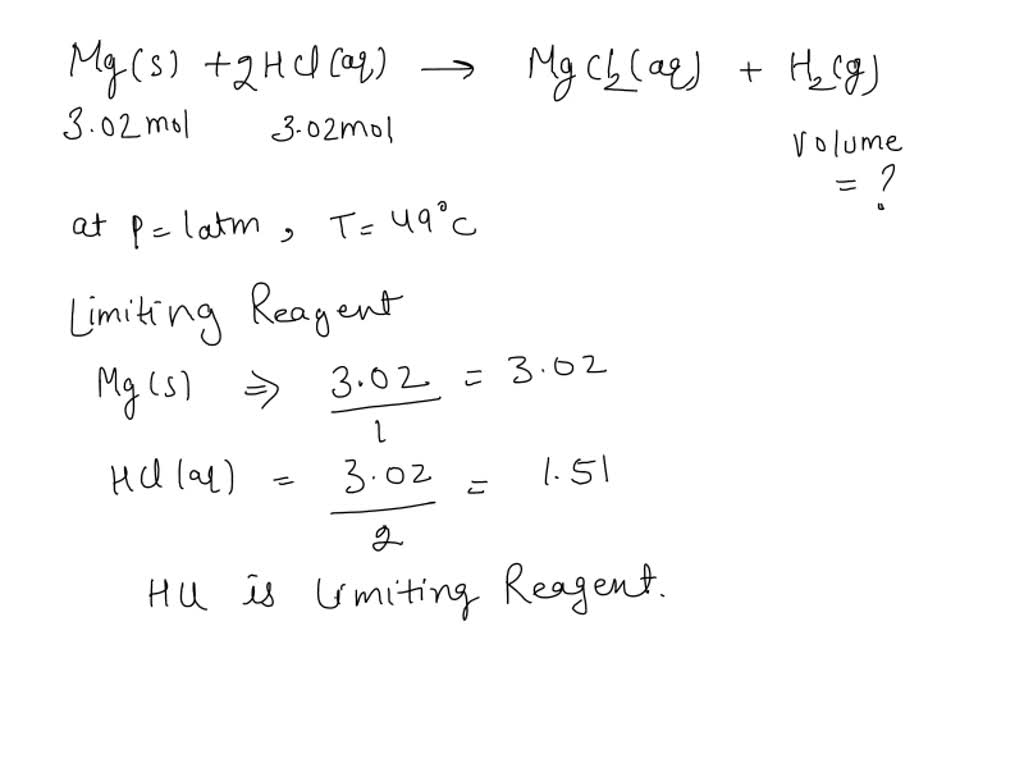 Mg(s) + 2HCl(aq) → MgCl₂(aq) + H₂(g)
3.02 mol 3.02 mol volume
= ?
at P = 1atm, T = 49°C
Limiting Reagent
Mg(s) ⇒ 3.02/1 = 3.02
HCl(aq) = 3.02/2 = 1.51
HCl is Limiting Reagent.